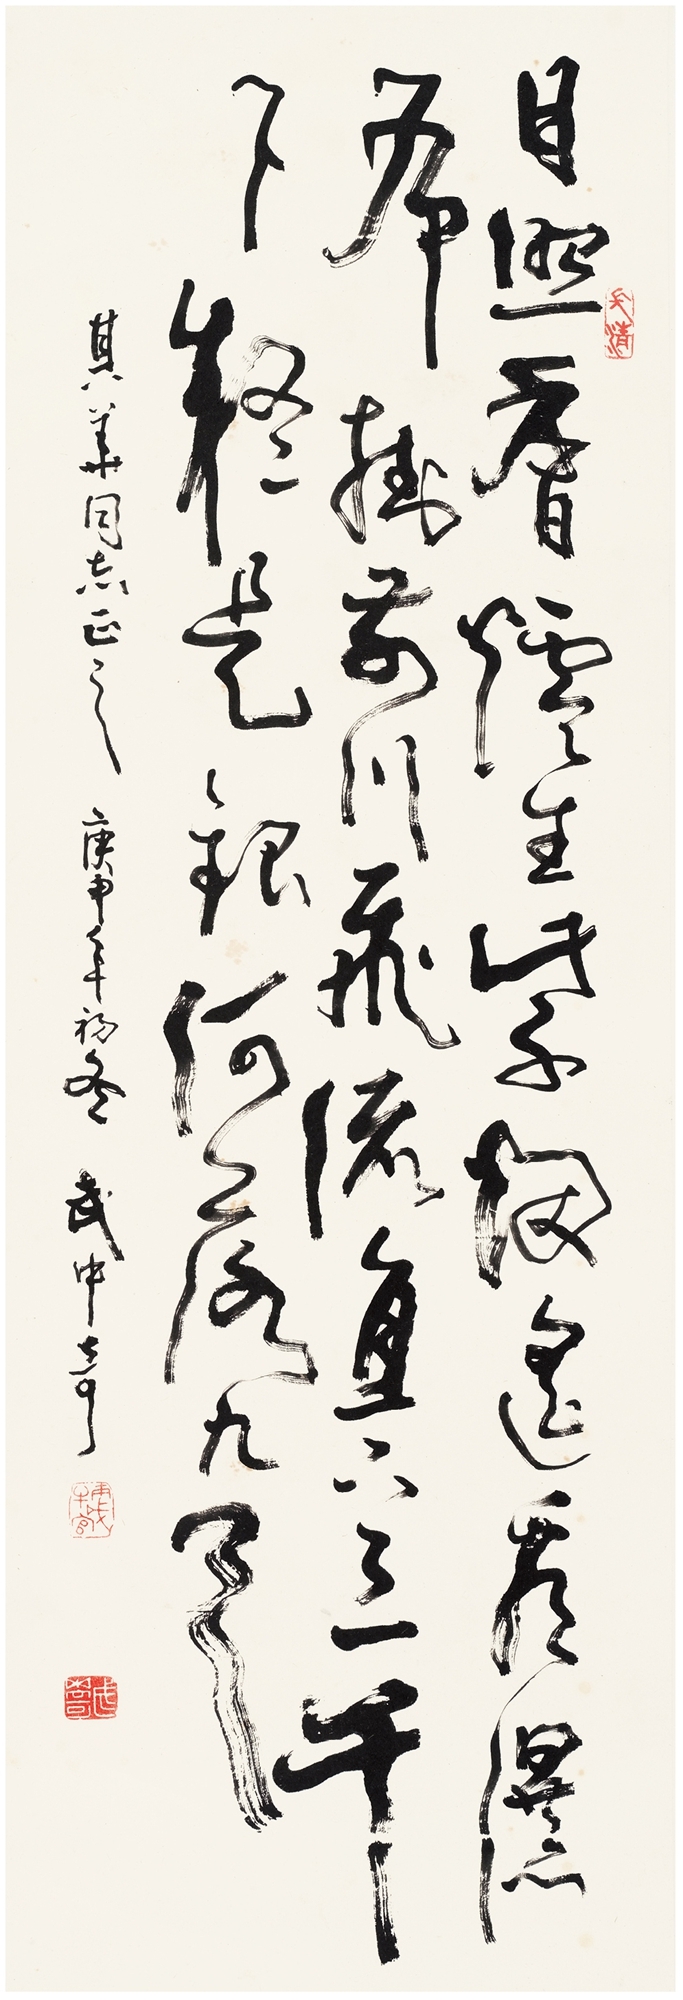 日照香爐生紫烟遙看瀑
布掛前川飛流直下三千
尺疑是銀河落九天
其華同志正之 庚申年初冬 武中奇